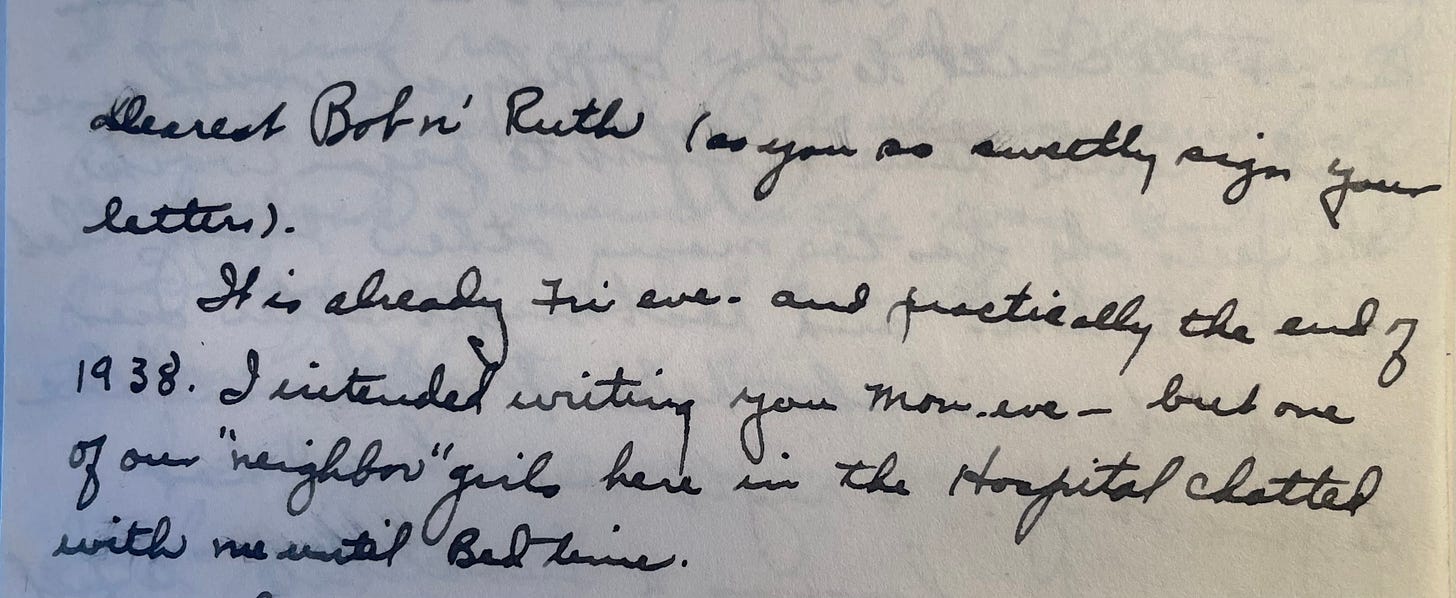 Dearest Bob n' Ruth (as you so sweetly sign your
letters).
It is already Fri eve. and practically the end of
1938. I intended writing you Mon. eve — but one
of our "neighbor" girls here in the Hospital chatted
with me until Bed time.